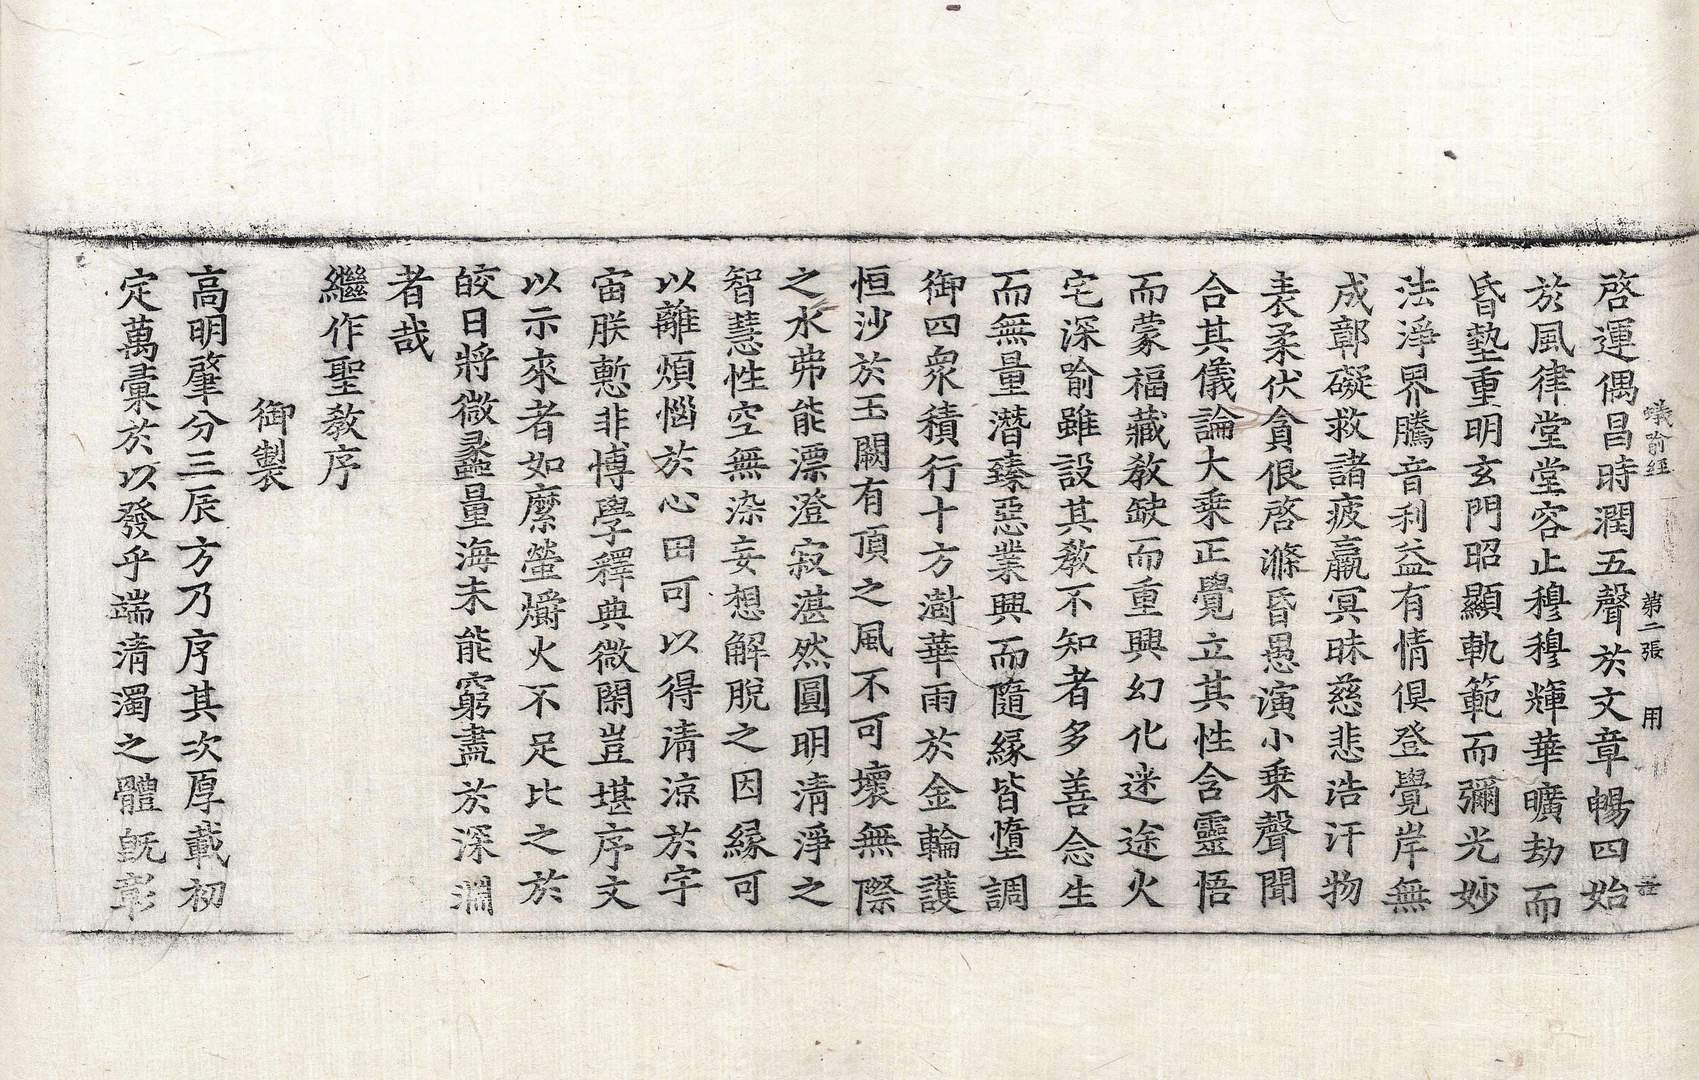 蟻喻經 第二張 用
啓運偶昌時潤五聲於文章暢四始
於風律堂堂容止穆穆輝華曠劫而
昏墊重明玄門昭顯軌範而彌光妙
法淨界騰音利益有情俱登覺岸無
成鄣礙救諸疲羸冥昧慈悲浩汗物
表柔伏貪佷啓滌昏愚演小乘聲聞
合其儀論大乘正覺立其性含靈悟
而蒙福藏教缺而重興幻化迷途火
宅深喻雖設其教不知者多善念生
而無量潛臻惡業興而隨緣皆墮調
御四衆積行十方澍華雨於金輪護
恒沙於玉闕有頂之風不可壞無際
之水弗能漂澄寂湛然圓明清淨之
智慧性空無染妄想解脫之因緣可
以離煩惱於心田可以得清涼於宇
宙朕慙非博學釋典微閑豈堪序文
以示來者如縻螢爝火不足比之於
皎日將微蠡量海未能窮盡於深淵
者哉
繼作聖教序
御製
高明肇分三辰方乃序其次厚載初
定萬彙於以發乎端清濁之體旣彰